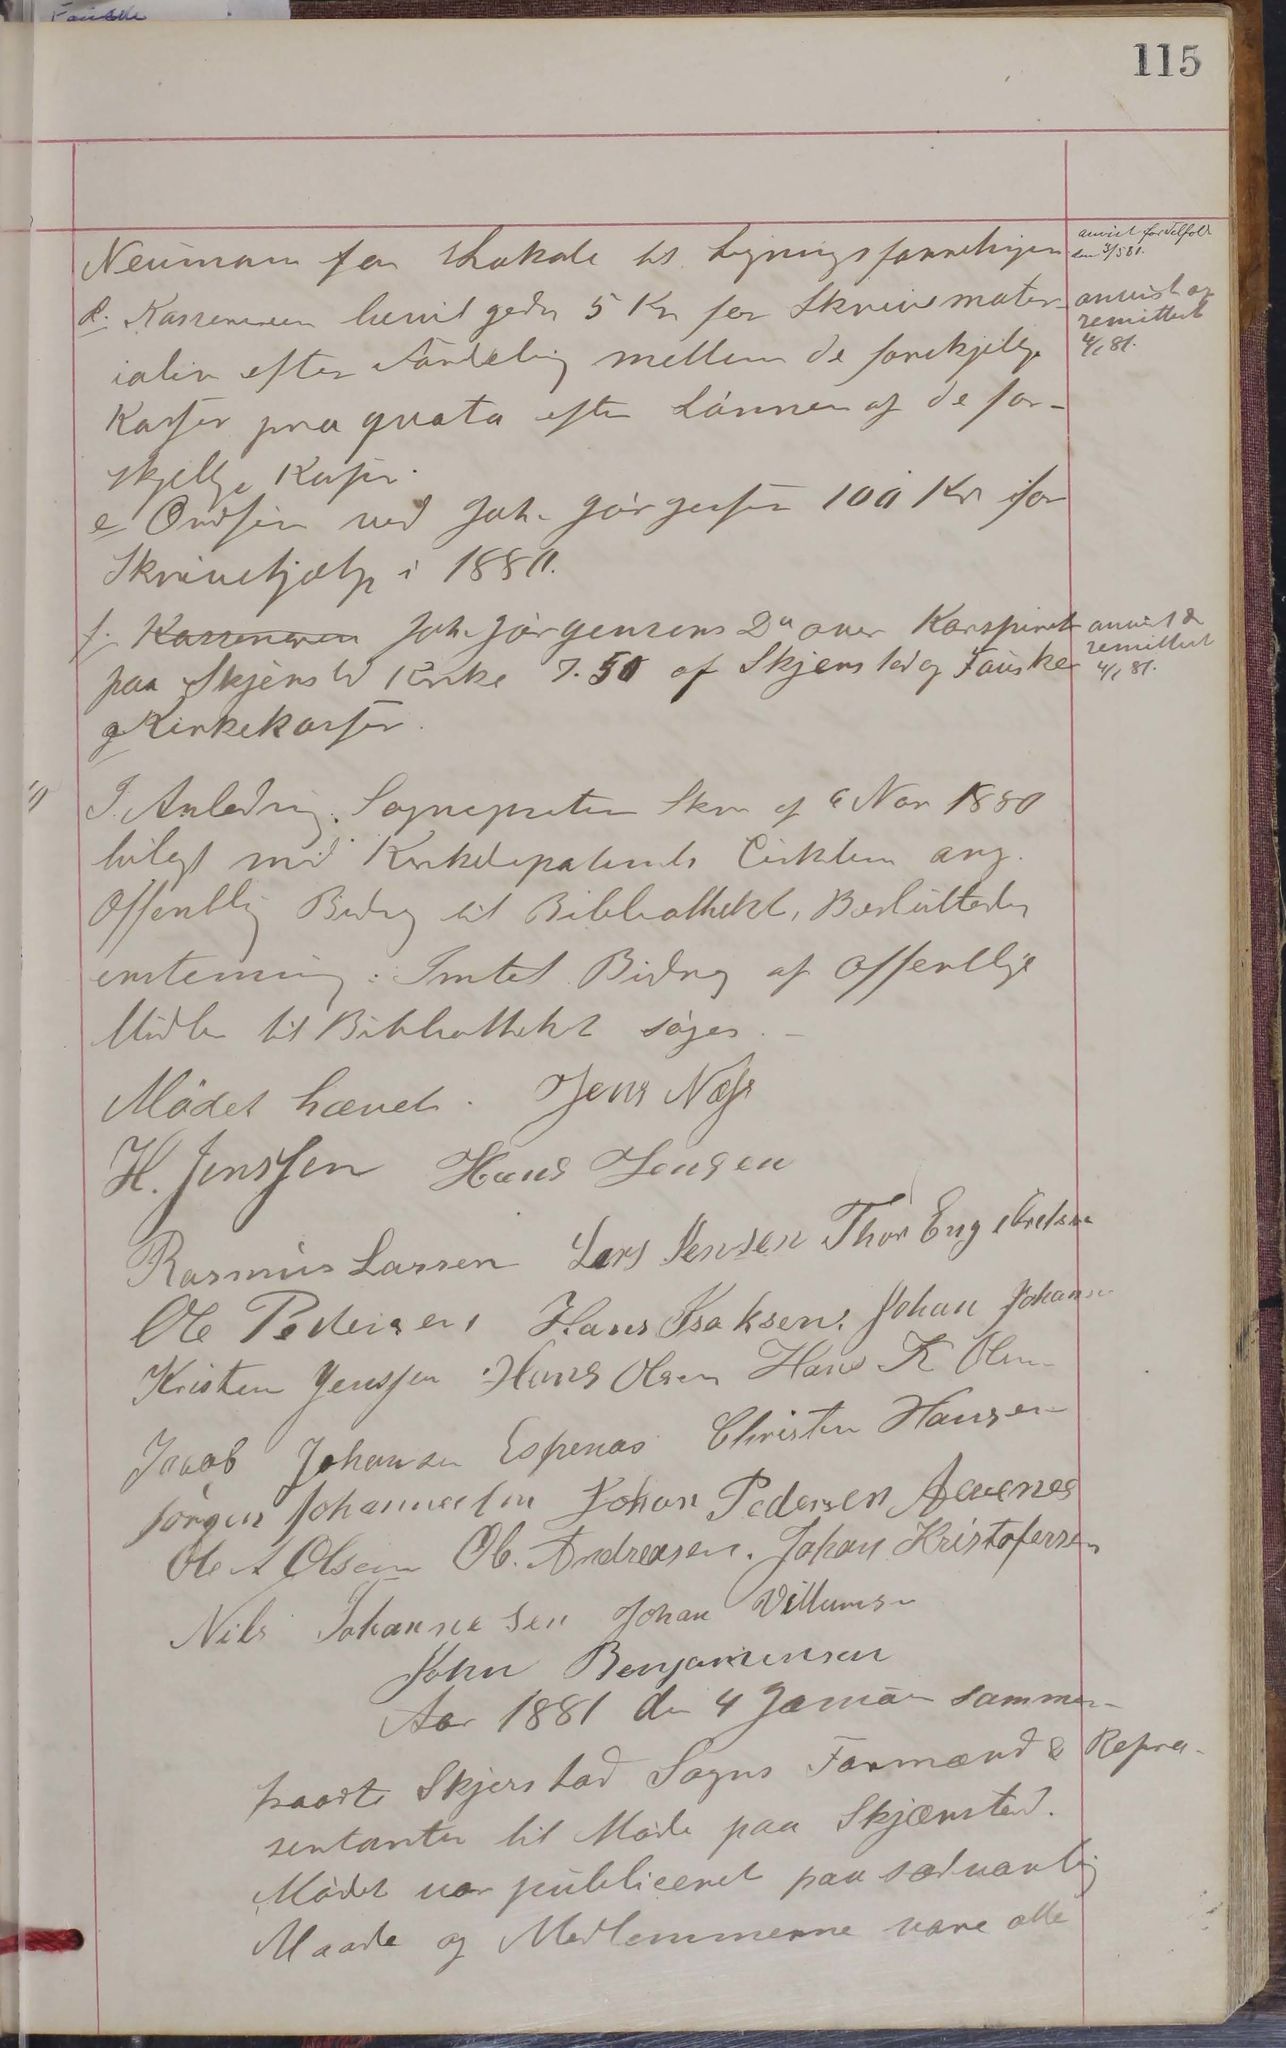 115
Neumann for Lokale til Ligningsforretningen
anvist
d. Kassereren bevilgedes 5 Kr for Skrivemater-
anvist og
remittert
4/1 81.
ialier efter Fordeling mellem de forskjellige
Kasser pro qvota efter Lønnen af de for-
skjellige Kasser.
e Ordføren ved Joh. Jørgensen 100 Kr for
Skrivehjælp i 1880.
f. Kassereren Joh Jørgensens Do over Korspiret
anvist &
remittert
4/1 81.
paa Skjerstad Kirke 7.50 af Skjerstad og Fauske
Kirkekasser.
I Anledning Sognepresten Skr af 6 Nov 1880
bilagt med Kirkedepatements Cirkulær ang.
Offentlig Bidrag til Bibliotheket, Besluttedes
enstemmig: Intet Bidrag af Offentlige
Midler til Bibliotheket søges.-
Mødet hævet. Jens Næss
H. Jenssen Hans Jensen
Rasmus Larsen Lars Jensen Thor Engebretsen
Ole Pedersen Hans Isaksen, Johan Johansen
Kristen Jenssen Hans Olsen Hans K Olsen
Jacob Johansen Espenæs Christen Hansen
Jørgen Johannessen Johan Pedersen
Ole A Olsen Ol. Andreasen. Johan Kristofersen
Nils Johannesen Johan Villumsen
John Benjaminsen
Aar 1881 den 4 Januar sammen-
traadte Skjerstad Sogns Formænd & Repræ-
sentanter til Møde paa Skjærstad.
Mødet var publiceret paa sædvanlig
Maade og Medlemmerne vare alle